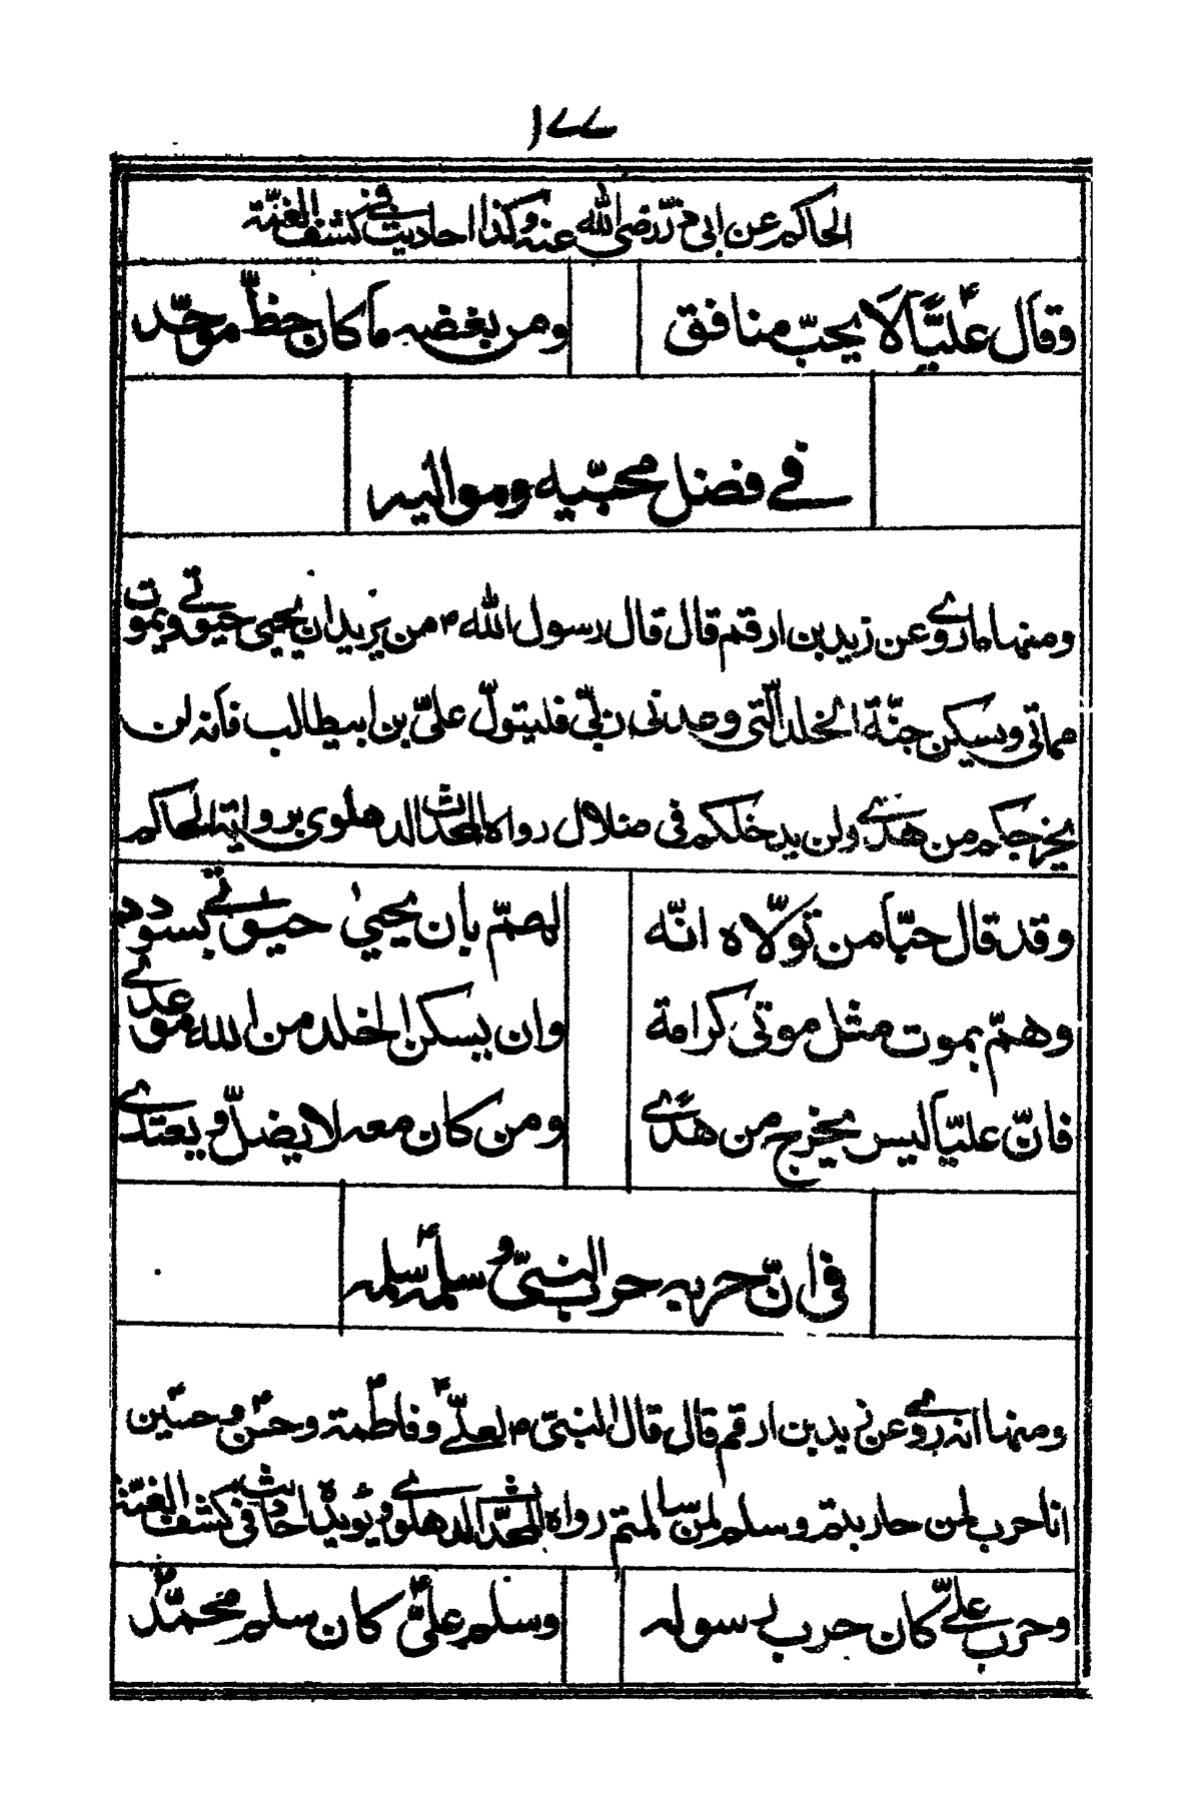 ١٧٧
الحاكم عن ابي ذرّ رضي الله عنه وكذا احاديث في كشف الغمّة
وقال عليّاً لا يحبّ منافق
ومن بغضه ما كان حظّ موحّد
في فضل محبّيه ومواليه
ومنها ما روي عن زيد بن ارقم قال قال رسول الله ؐ من يريد ان يحيي حيوتي ويموت
مماتي ويسكن جنّة الخلد الّتي وعدني ربّي فليتولّ عليّ بن ابيطالب فانه لن
يخرجكم من هدي ولن يدخلكم في ضلال رواه المحدّث الدهلوي برواية الحاكم
وقد قال حبّا من تولّاه انّه
لهمّ بان يحيىٰ حيوتي بسودد
وهمّ بموت مثل موتي كرامة
وان يسكن الخلد من الله موعدي
فانّ عليّاً ليس يخرج من هدًي
ومن كان معه لا يضلّ ويعتدي
في انّ حربه حرب النبيّ وسلمه سلمه
ومنها انه روي عن زيد بن ارقم قال قال النبيّ ؐ لعليّ وفاطمة وحسن وحسين
انا حرب لمن حاربتم وسلم لمن سالمتم رواه المحدّث الدهلوي ويؤيده احاديث في كشف الغمّة
وحرب عليّ كان حرب رسوله
وسلم عليّ كان سلم محمّد